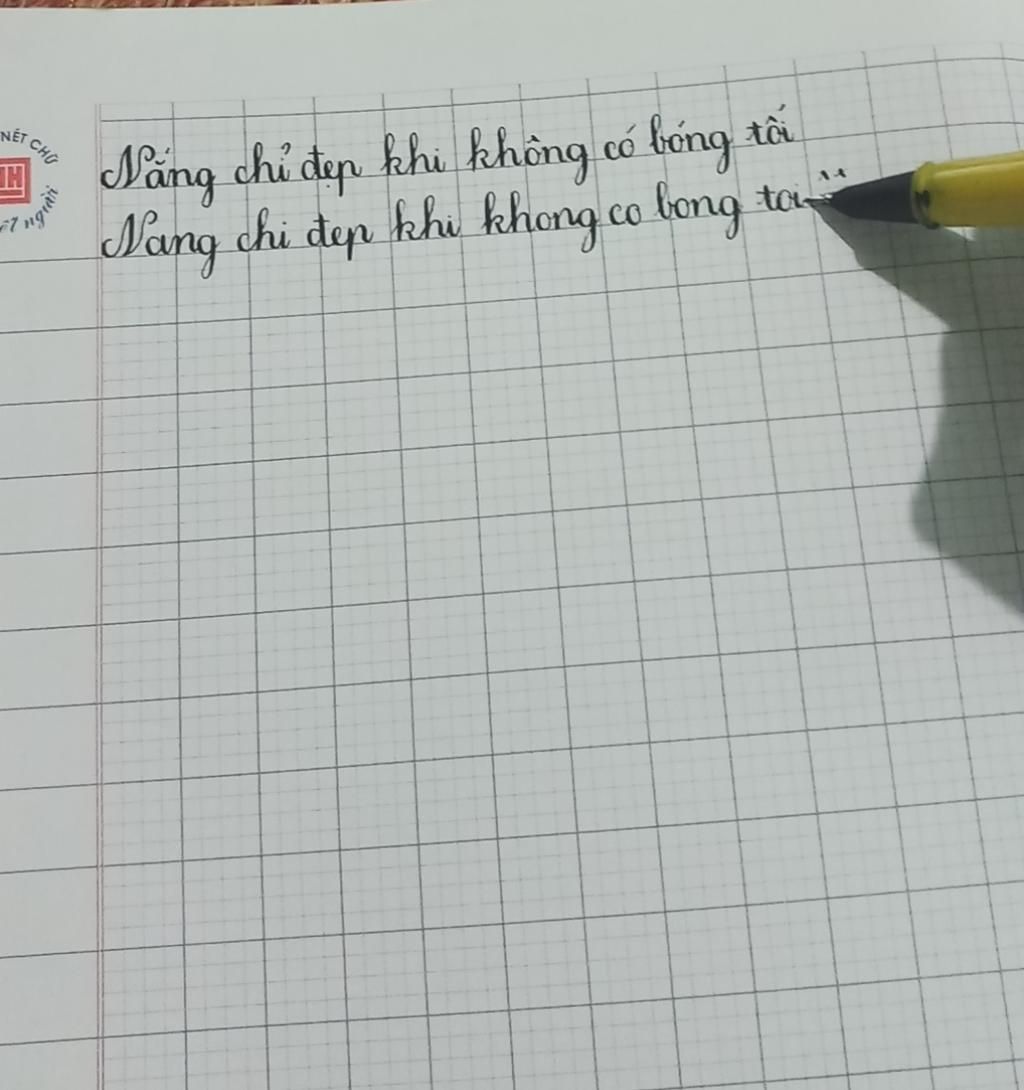 NÉT CHỮ
Nắng chỉ đẹp khi không có bóng tối
Nang chi đep khi khong co bong toi